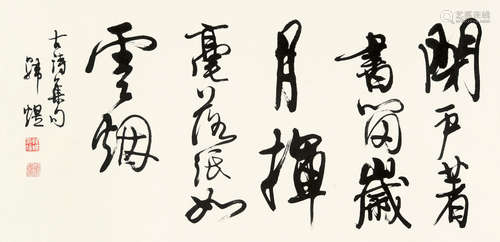 閉戶著
書留歲
月揮
毫落紙如
雲烟
古詩集句
韩煜